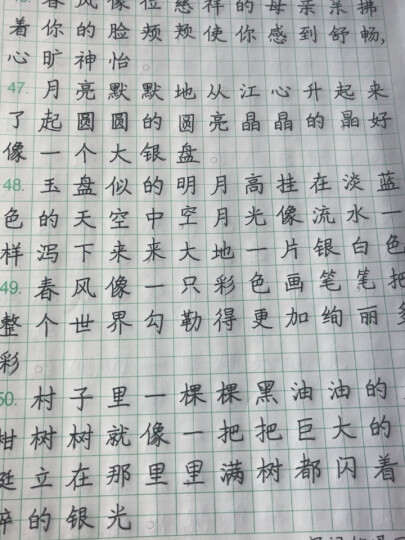 春风像位慈祥的母亲亲拂
着你的脸颊颊使你感到舒畅,
心旷神怡
47. 月亮默默地从江心升起来
了起圆圆的圆亮晶晶的晶好
像一个大银盘
48. 玉盘似的明月高挂在淡蓝
色的天空中空月光像流水一
样泻下来来大地一片银白色
49. 春风像一只彩色画笔笔把
整个世界勾勒得更加绚丽多
彩
50. 村子里一棵棵黑油油的
柑树树就像一把把巨大的
挺立在那里里满树都闪着
碎的银光